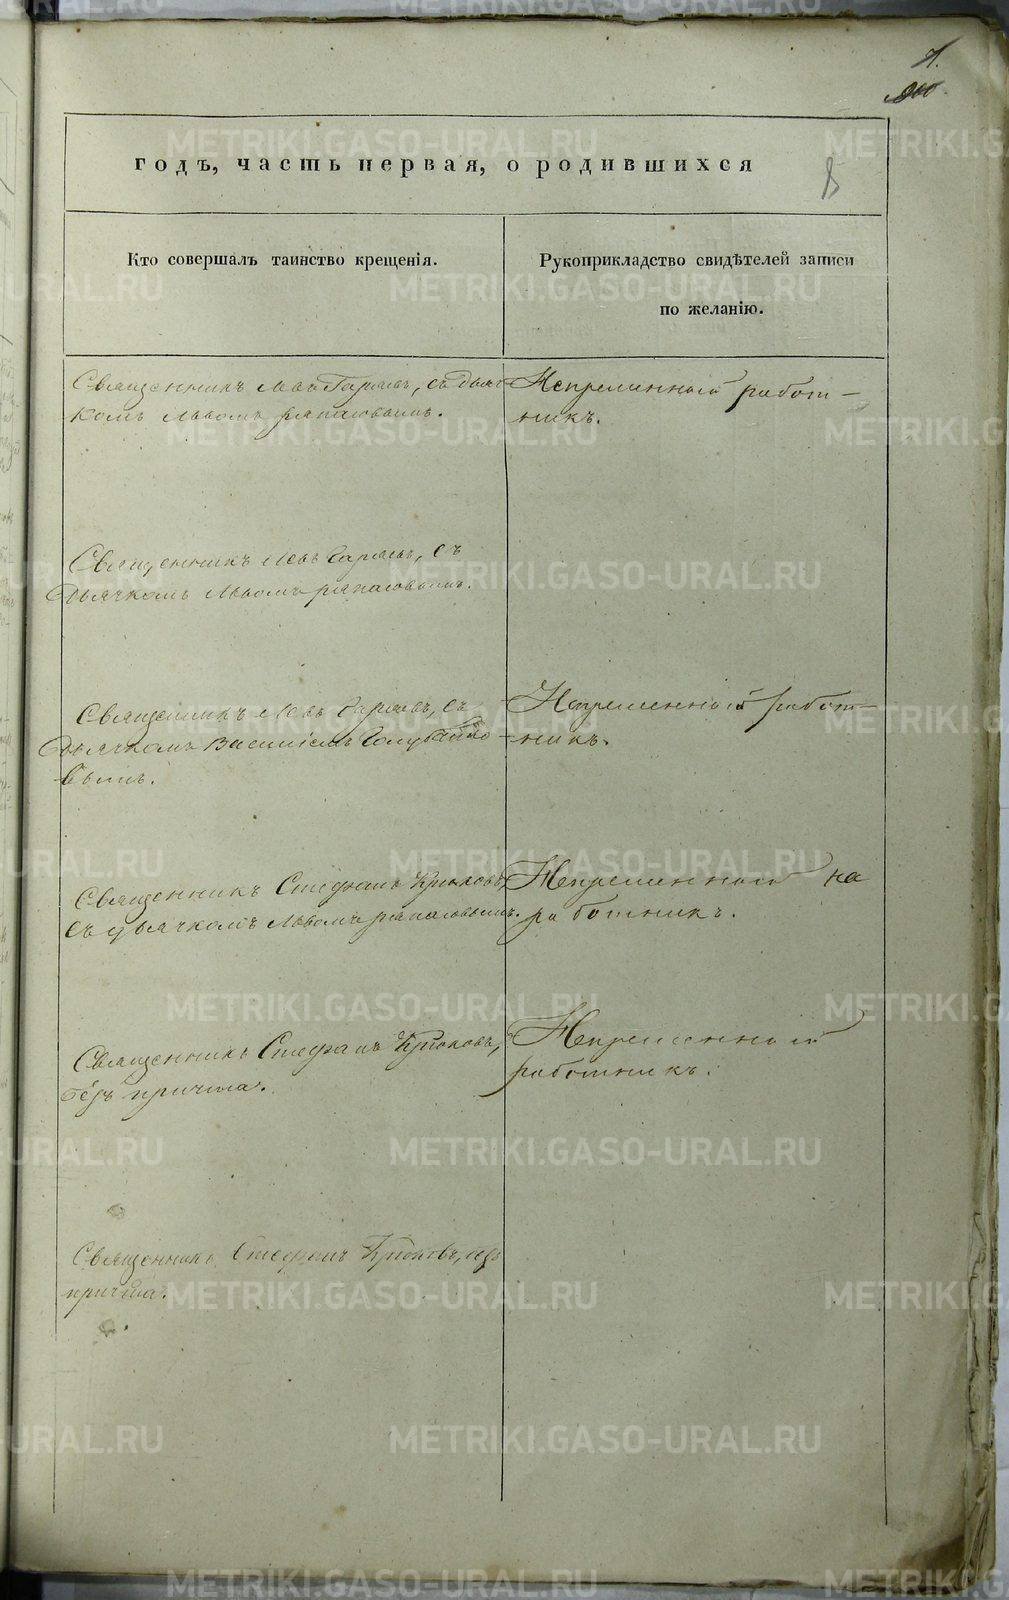 7.
8
годъ, часть первая, о родившихся
Кто совершалъ таинство крещенія.
Рукоприкладство свидѣтелей записи
по желанію.
Священникъ Левъ съ дьяч-
комъ Львомъ
Непременной работ-
никъ.
Священникъ Левъ съ
Дьячкомъ Львомъ
Священникъ Левъ съ
Дьячкомъ Василіемъ
вымъ.
Непременной работ-
никъ.
Священникъ Стефанъ Крюковъ,
съ дьячкомъ Львомъ
Непременной на
работникъ.
Священникъ Стефанъ Крюковъ,
безъ причта.
Непременной
работникъ.
Священникъ Стефанъ Крюковъ, безъ
причта.
METRIKI.GASO-URAL.RU